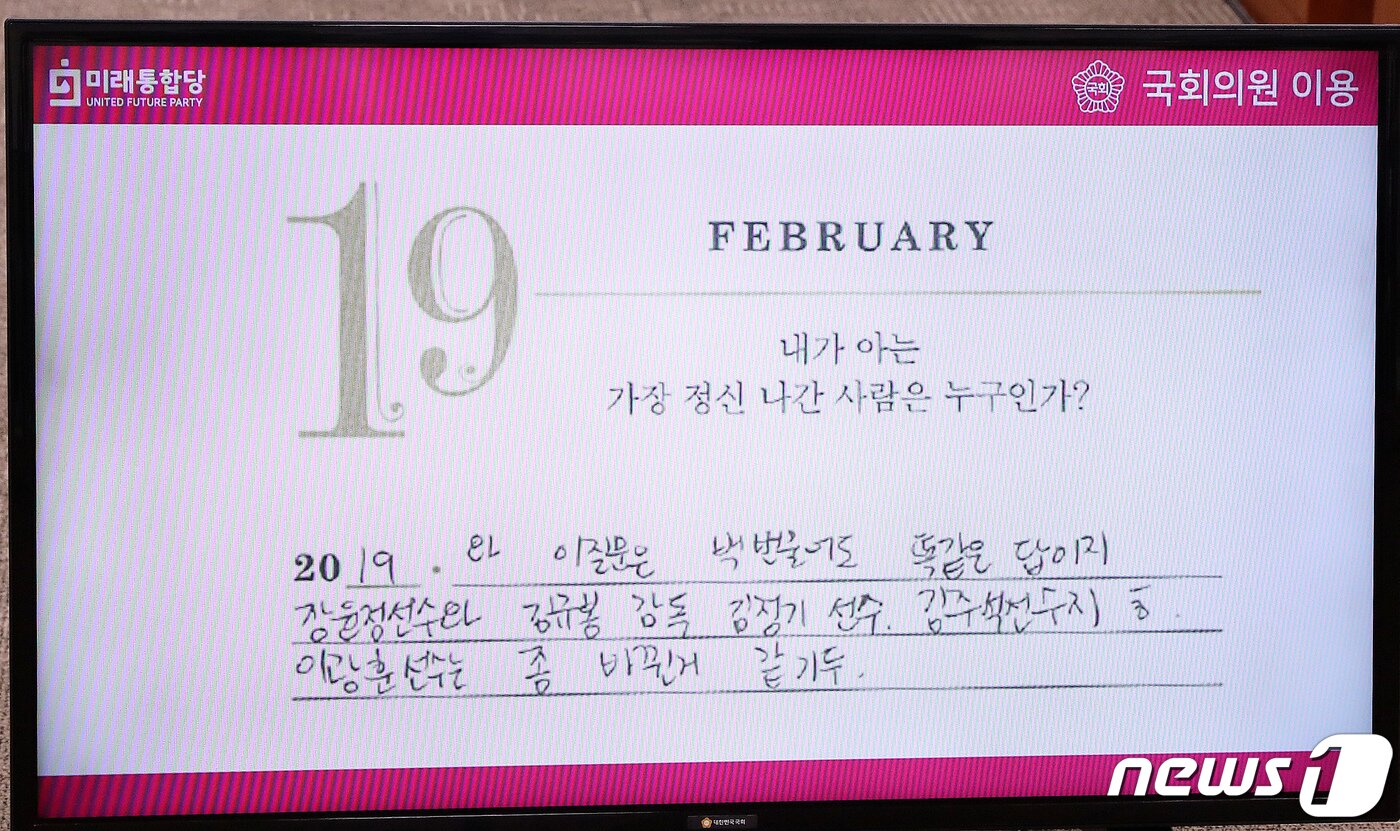 미래통합당
UNITED FUTURE PARTY
국회
국회의원 이용
19
FEBRUARY
내가 아는
가장 정신 나간 사람은 누구인가?
2019. 와 이질문은 백번물어도 똑같은 답이지
장윤정선수와 김규봉 감독 김정기 선수. 김주석선수지 ㅎ.
이광훈선수는 좀 바뀐거 같기두.
대한민국국회
news1